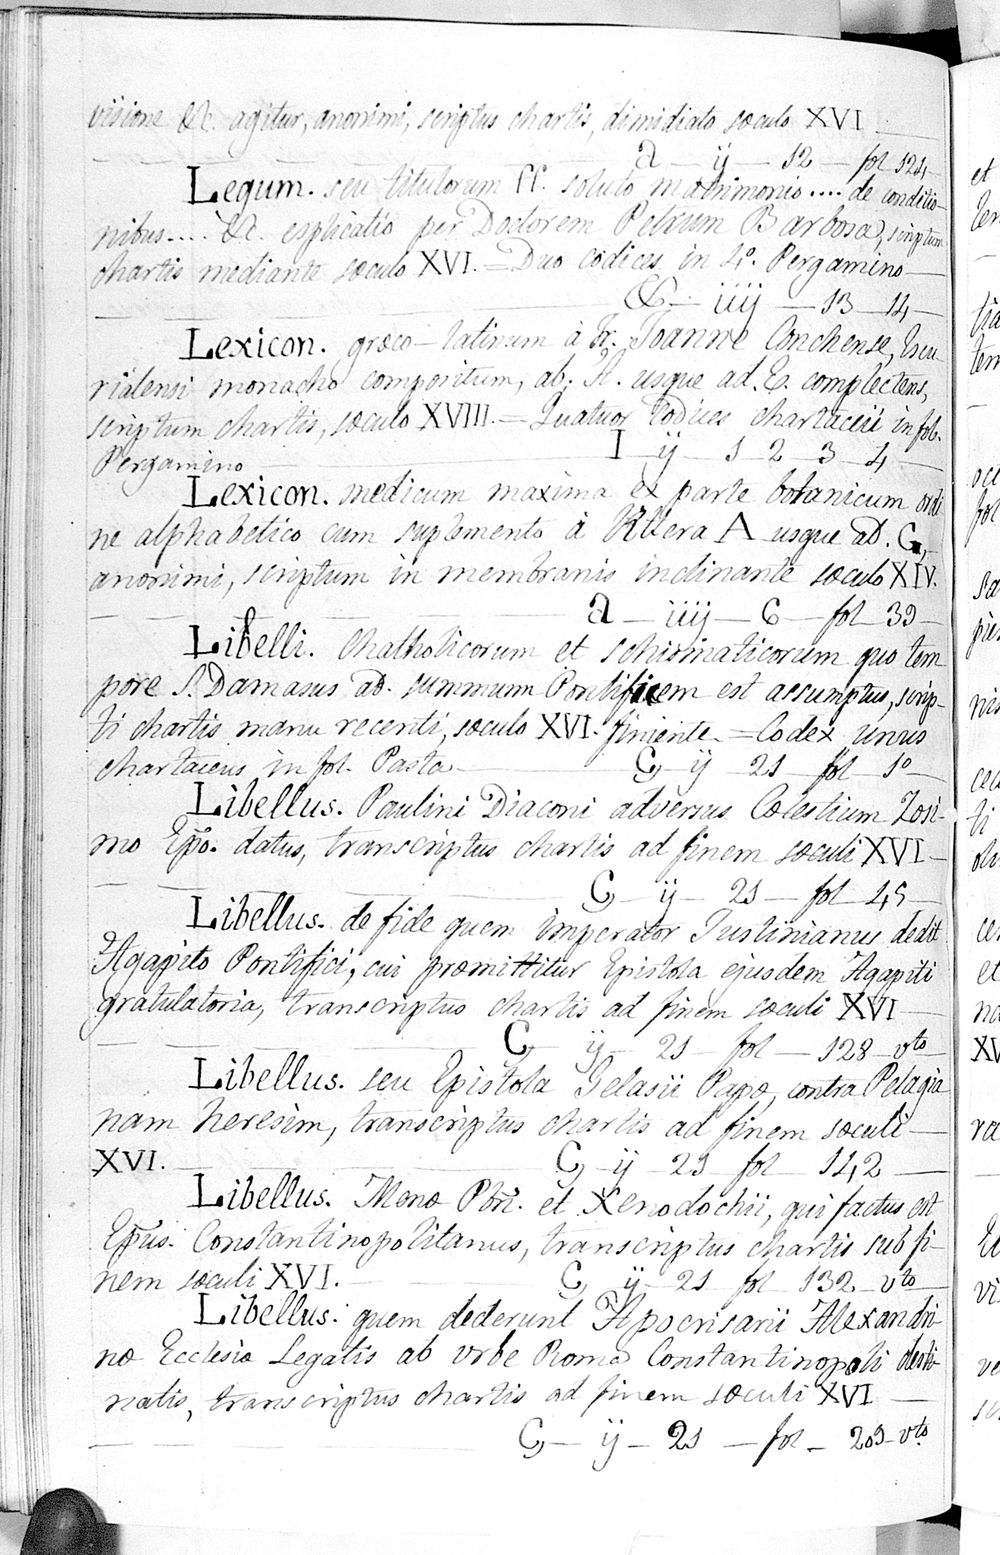 visione &c. agitur, anonimi, scriptus chartis, dimidiato sæculo XVI
a — ij — 12 — fol 121,
Legum. seu titulorum ff. soluto matrimonio .... de conditio-
nibus .... &c. esplicatio per Doctorem Petrum Barbosa, scriptum
chartis mediante sæculo XVI. = Duo codices in 4º. Pergamino
& — iiij — 13 14
Lexicon. græco-latinum à Fr. Joanne Conchense, Escu
rialensi monacho compositum, ab, A. usque ad. E. complectens,
scriptum chartis, sæculo XVIII. = Quatuor Codices chartaceii in fol.
Pergamino — I — ij — 1 2 3 4
Lexicon. medicum maxima ex parte botanicum ordi
ne alphabetico cum suplemento à littera A usque ad. G,
anonimi, scriptum in membranis inclinante sæculo XIV.
a — iiij — 6 — fol 39
Libelli. Chatholicorum et schismaticorum quo tem
pore S. Damasus ad. summum Pontificem est assumptus, scrip-
ti chartis manu recenti, sæculo XVI. finiente. = Codex unus
chartaceus in fol. Pasta — G ij 21 fol 1º
Libellus. Paulini Diaconi adversus Cœlestium Zosi-
mo Epo. datus, transcriptus chartis ad finem sæculi XVI
G ij — 21 — fol 45
Libellus. de fide quem imperator Justinianus dedit
Agapito Pontifici, cui præmittitur Epistola ejusdem Agapiti
gratulatoria, transcriptus chartis ad finem sæculi XVI
G — ij — 21 — fol — 128 vto
Libellus. seu Epistola Gelasii Papæ, contra Pelagia
nam heresim, transcriptus chartis ad finem sæculi
XVI. G ij — 21 fol 142
Libellus. Menæ Pbri. et Xenodochii, qui factus est
Epus. Constantinopolitanus, transcriptus chartis sub fi-
nem sæculi XVI. G ij — 21 fol 132 vto
Libellus: quem dederunt Apocrisarii Alexandri-
næ Ecclesiæ Legatis ab urbe Roma Constantinopoli desti-
natis, transcriptus chartis ad finem sæculi XVI
G — ij — 21 — fol — 209 vto